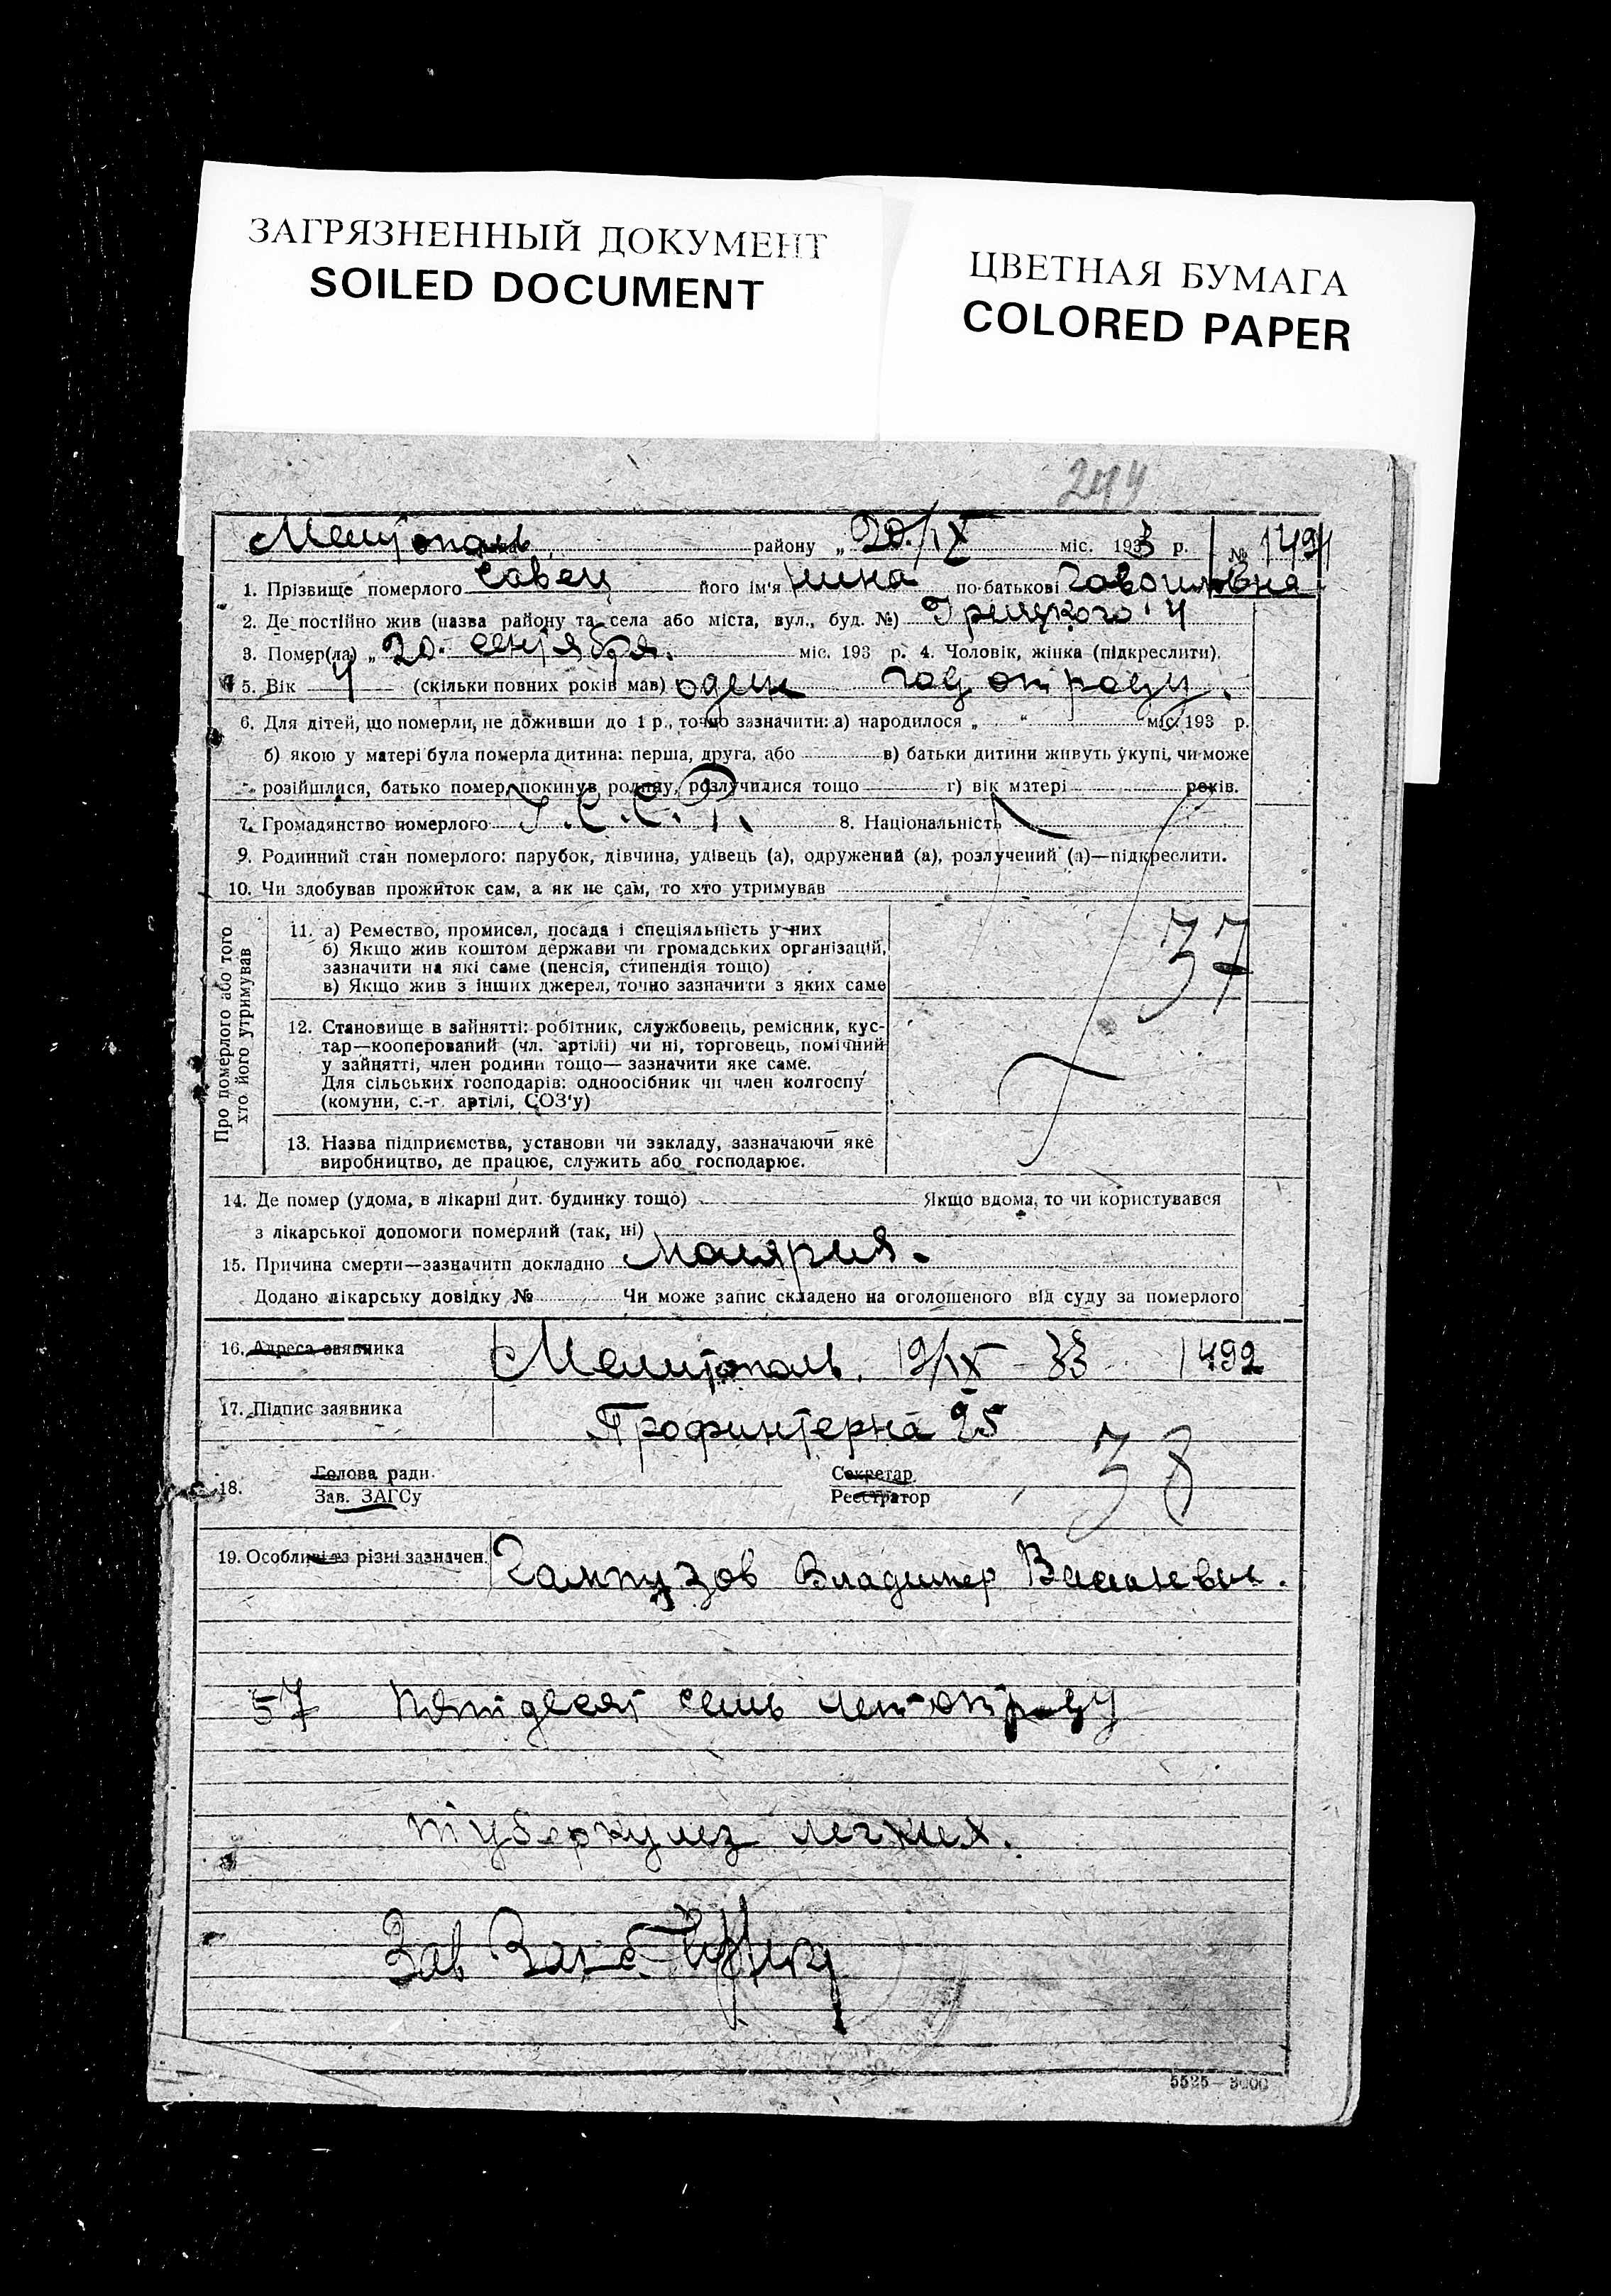 ЗАГРЯЗНЕННЫЙ ДОКУМЕНТ
SOILED DOCUMENT
ЦВЕТНАЯ БУМАГА
COLORED PAPER
244
Мелитополь району „ 20./IX міс. 1933 р. № 1491
1. Прізвище померлого Савец його ім'я Нина по-батькові
2. Де постійно жив (назва району та села або міста, вул., буд. №) 4
3. Помер(ла) „ 20. сентября. міс. 193 р. 4. Чоловік, жінка (підкреслити).
5. Вік (скільки повних років мав) один год отроду.
6. Для дітей, що померли, не доживши до 1 р., точно зазначити: а) народилося „ “ міс. 193 р.
б) якою у матері була померла дитина: перша, друга, або в) батьки дитини живуть укупі, чи може
розійшлися, батько помер, покинув родину, розлучилися тощо г) вік матері років.
7. Громадянство померлого У.С.С.Р. 8. Національність
9. Родинний стан померлого: парубок, дівчина, удівець (а), одружений (а), розлучений (а)—підкреслити.
10. Чи здобував прожиток сам, а як не сам, то хто утримував
Про померлого або того
хто його утримував
11. а) Ремество, промисел, посада і спеціяльність у них
б) Якщо жив коштом держави чи громадських організацій,
зазначити на які саме (пенсія, стипендія тощо)
в) Якщо жив з інших джерел, точно зазначити з яких саме
37
12. Становище в зайнятті: робітник, службовець, ремісник, кус-
тар—кооперований (чл. артілі) чи ні, торговець, помічний
у зайнятті, член родини тощо— зазначити яке саме.
Для сільських господарів: одноосібник чи член колгоспу
(комуни, с.-г. артілі, СОЗ'у)
13. Назва підприємства, установи чи закладу, зазначаючи яке
виробництво, де працює, служить або господарює.
14. Де помер (удома, в лікарні дит. будинку тощо) Якщо вдома, то чи користувався
з лікарської допомоги померлий (так, ні)
15. Причина смерти—зазначити докладно малярия.
Додано лікарську довідку № Чи може запис складено на оголошеного від суду за померлого
16. Адреса заявника Мелитополь. 19/IX - 33 1492
17. Підпис заявника Профинтерна 25
38
18. Голова ради. Секретар
Зав. ЗАГСу Реєстратор
19. Особливі та різні зазначен. Владимир
57 пятдесят семь лет отроду
туберкулез легких.
Зав
5525—3000